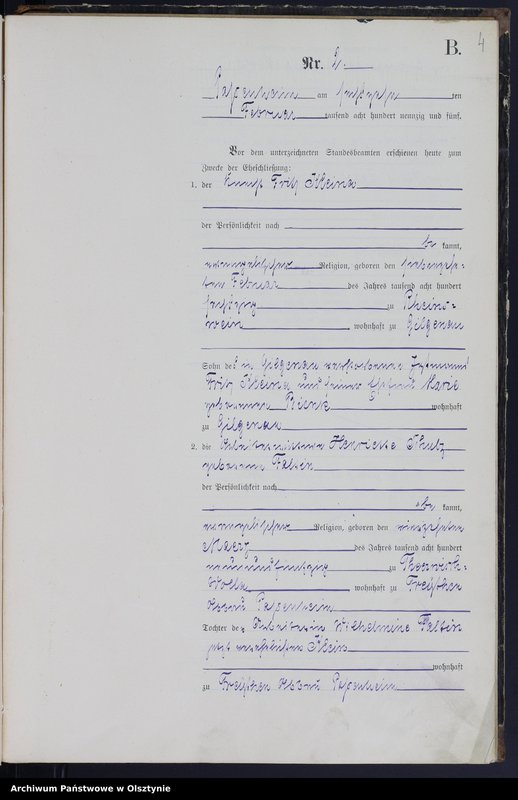 B. 4
Nr. 2.
Passenheim am sechszehn ten
Februar tausend acht hundert neunzig und fünf.
Vor dem unterzeichneten Standesbeamten erschienen heute zum
Zwecke der Eheschließung:
1. der Knecht Fritz Kleina
der Persönlichkeit nach
be kannt,
evangelischer Religion, geboren den siebenzehn-
ten Februar des Jahres tausend acht hundert
sechszig zu Rheins-
wein, wohnhaft zu Gilgenau
Sohn des in Gilgenau verstorbenen
Fritz Kleina und seiner Ehefrau Marie
geborenen wohnhaft
zu Gilgenau
2. die Arbeiterwittwe Henriette
geborene Falten
der Persönlichkeit nach
be kannt,
evangelischer Religion, geboren den vierzehnten
Maerz des Jahres tausend acht hundert
neunundfünfzig zu Theerwisch-
Wolla wohnhaft zu
Abbau Passenheim
Tochter der Arbeiterin Wilhelmine Faltin
jetzt verehelichten Klein
wohnhaft
zu Abbau Passenheim
Archiwum Państwowe w Olsztynie